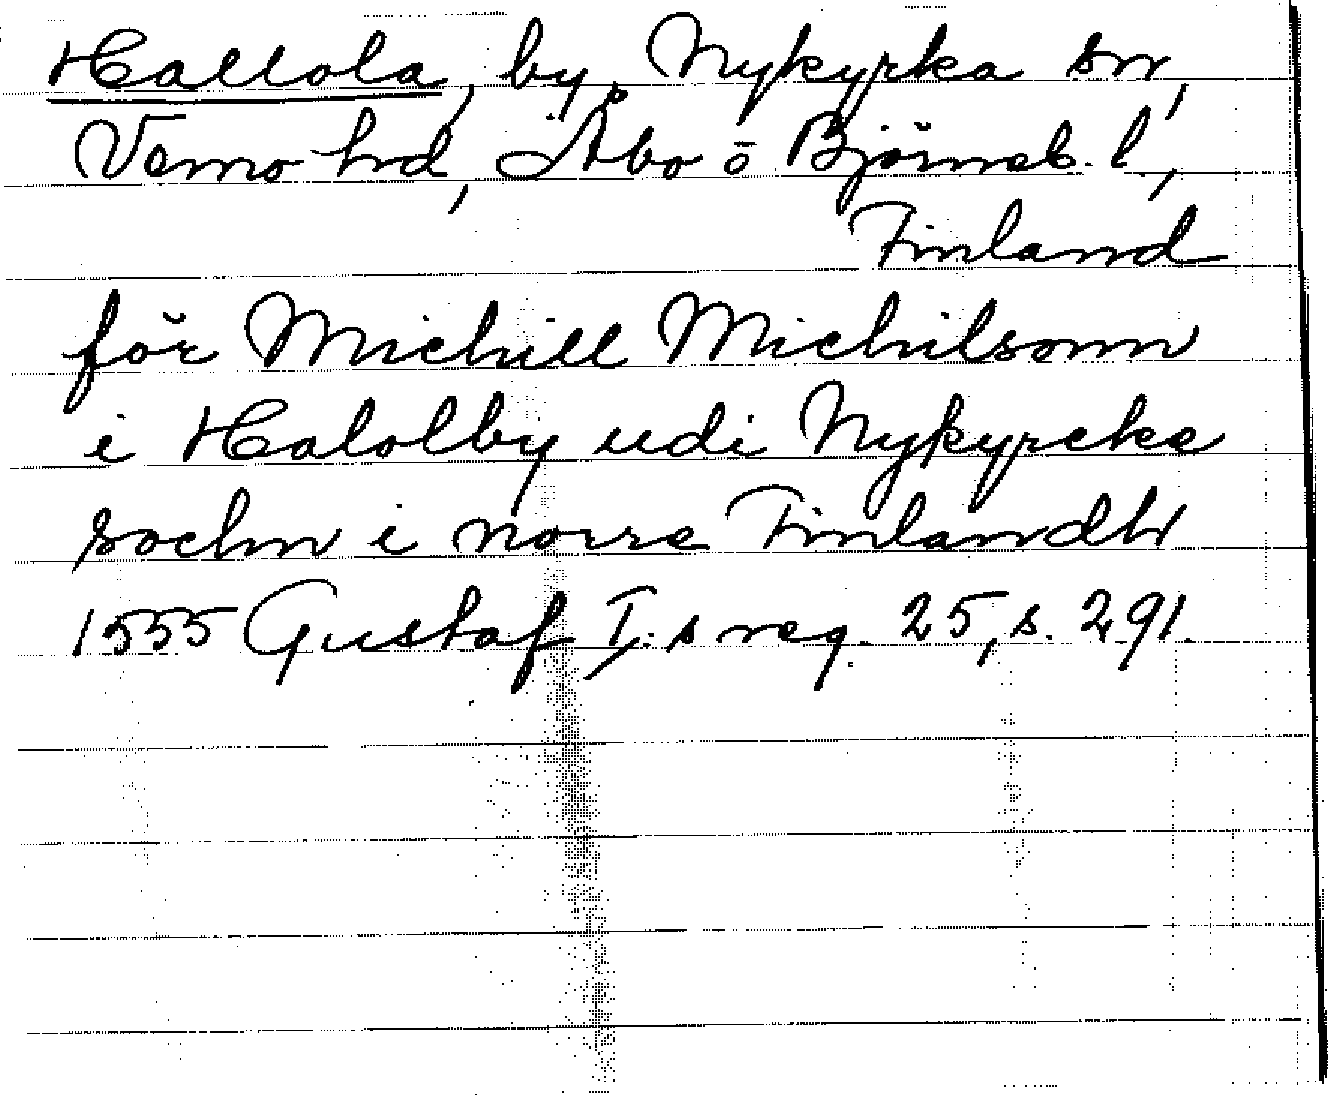 Hallola, by, Nykyrka sn,
Vemo hd, Åbo o Björneb. l,
Finland
för Michill Michilsonn
i Halolby udi Nykyrcke
sochn i norre Finlandh
1555 Gustaf I:s reg. 25, s. 291.